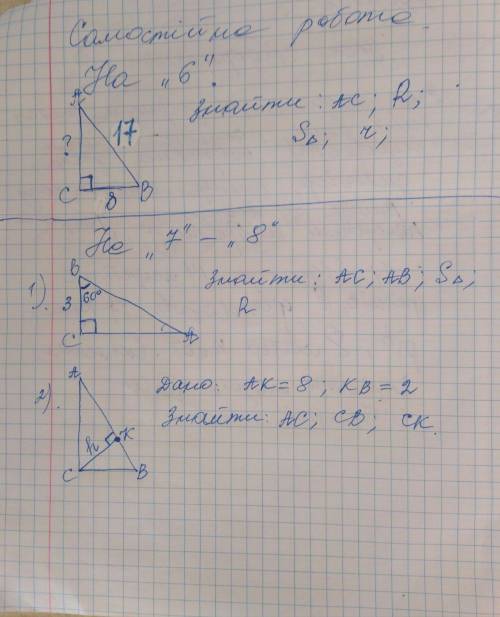 Самостійна робота.
На „6".
Знайти: AC; R;
S△; r;
A
?
17
C
8
B
На „7" – „8"
1)
B
3
60°
C
A
Знайти: AC; AB; S△;
R
2).
A
h
K
C
B
Дано: AK = 8; KB = 2
Знайти: AC; CB; CK.